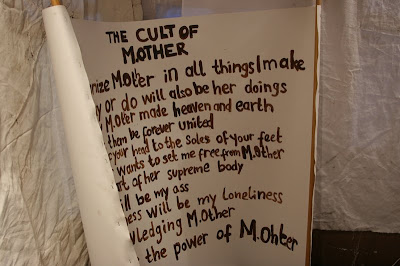 THE CULT OF
M.OTHER
nize M.Other in all things I make
y or do will also be her doings
M.Other made heaven and earth
them be forever united
f your head to the soles of your feet
wants to set me free from M.Other
rt of her supreme body
ill be my ass
ness will be my loneliness
wledging M.Other
the power of M.Ohter